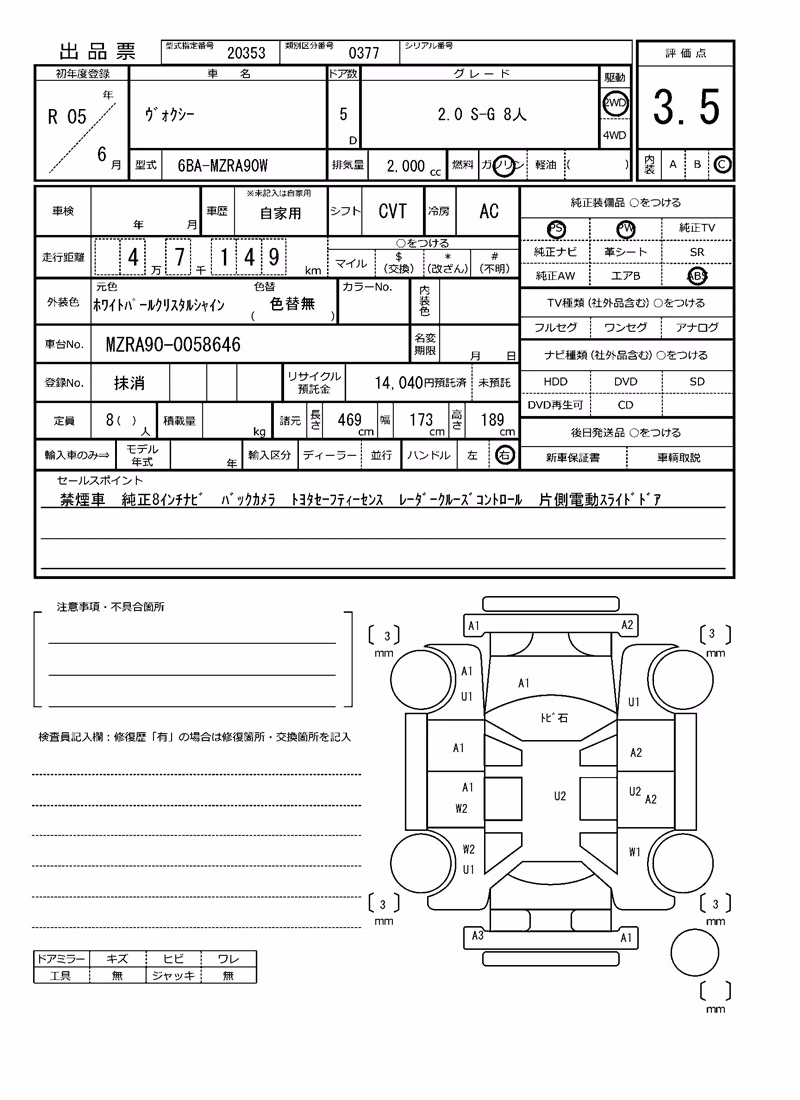 出品票
型式指定番号 20353 類別区分番号 0377 シリアル番号
評価点
3.5
内装 A B C
初年度登録 車名 ドア数 グレード 駆動
R 05 年 6 月 ヴォクシー 5 D 2.0 S-G 8人 2WD 4WD
型式 6BA-MZRA90W 排気量 2,000 cc 燃料 ガソリン 軽油 ( )
車検 年 月 車歴 ※未記入は自家用 自家用 シフト CVT 冷房 AC
走行距離 4 万 7 千 1 4 9 km ○をつける
マイル $(交換) *(改ざん) #(不明)
外装色 元色 ホワイトパールクリスタルシャイン 色替 ( 色替無 ) カラーNo. 内装色
車台No. MZRA90-0058646 名変期限 月 日
登録No. 抹消 リサイクル預託金 14,040円預託済 未預託
定員 8( )人 積載量 kg 諸元 長さ 469cm 幅 173cm 高さ 189cm
輸入車のみ⇒ モデル年式 年 輸入区分 ディーラー 並行 ハンドル 左 右
純正装備品 ○をつける
PS PW 純正TV
純正ナビ 革シート SR
純正AW エアB ABS
TV種類(社外品含む)○をつける
フルセグ ワンセグ アナログ
ナビ種類(社外品含む)○をつける
HDD DVD SD
DVD再生可 CD
後日発送品 ○をつける
新車保証書 車輌取説
セールスポイント
禁煙車 純正8インチナビ バックカメラ トヨタセーフティーセンス レーダークルーズコントロール 片側電動スライドドア
注意事項・不具合箇所
検査員記入欄:修復歴「有」の場合は修復箇所・交換箇所を記入
ドアミラー キズ ヒビ ワレ
工具 無 ジャッキ 無
A1 A2
[ 3 ] mm [ 3 ] mm
A1
U1
A1
U1
トビ石
A1 A2
A1
W2
U2
U2
A2
W2
U1
W1
[ 3 ] mm [ 3 ] mm
A3 A1
[ ] mm